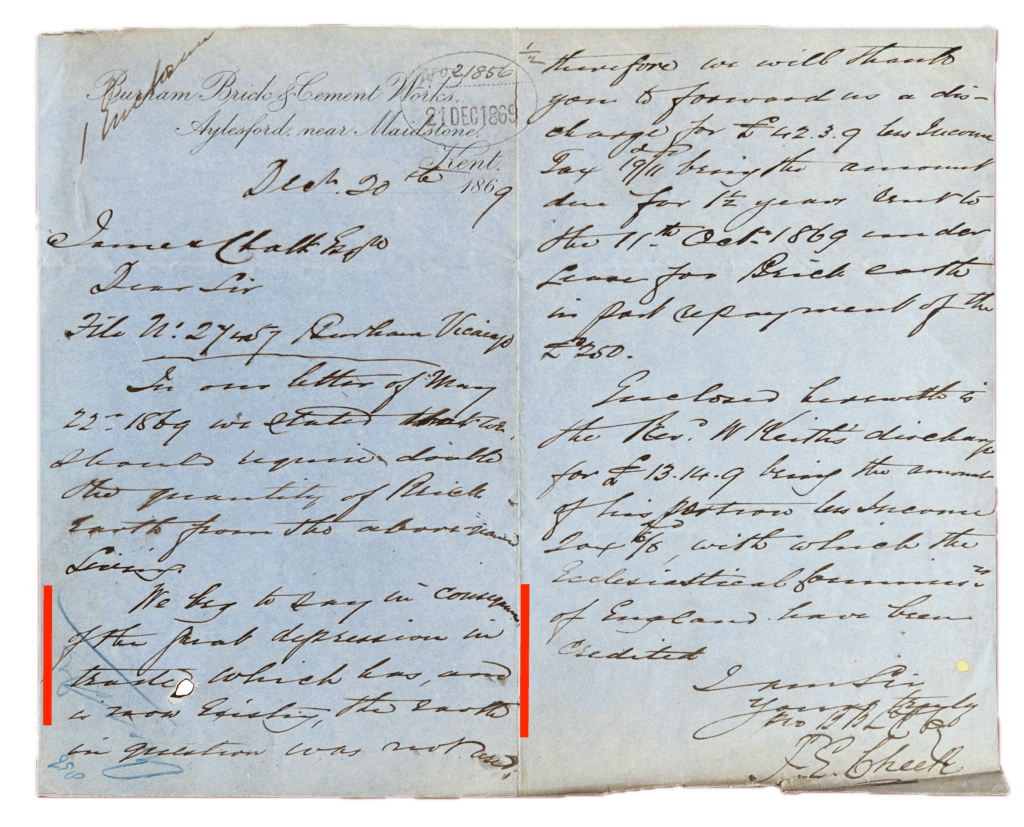 1 Enclosure
Burham Brick & Cement Works,
Aylesford, near Maidstone,
Kent.
21856
21 DEC 1869
Decr. 20th 1869
James Chalk Esqre
Dear Sir
File No. 27457 Burham Vicarage
In our letter of May
22nd 1869 we stated that we
should require double
the quantity of Brick
Earth from the above named
Living.
We beg to say in consequence
of the great depression in
trade, which has, and
is now Existing, the earth
in question was not used,
1/2
therefore we will thank
you to forward us a dis-
charge for £42.3.9 less Income
Tax 19/11 being the amount
due for 1½ years rent to
the 11th Octr. 1869 under
Lease for Brick earth
in part repayment of the
£250.
Enclosed herewith is
the Revd. W Keith's discharge
for £13.14.9 being the amount
of his portion less Income
Tax, with which the
Ecclesiastical Commissrs
of England have been
Credited
I am Sir
Yours truly
T. E. Cheek